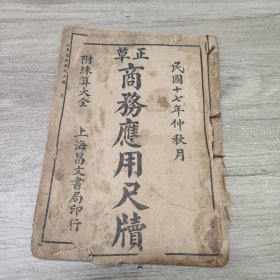 民國十七年仲秋月
正草
商務應用尺牘
附珠算大全
上海昌文書局印行